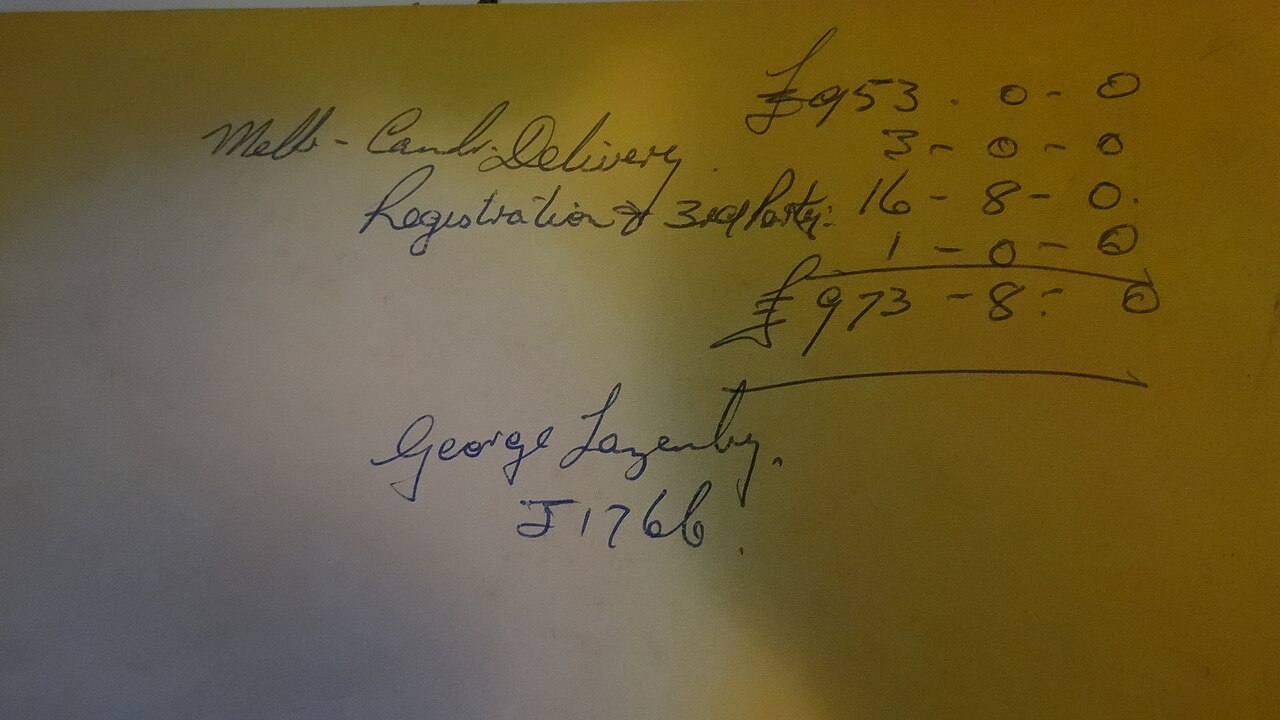 £953. 0 - 0
Melb - Canb. Delivery. 3 - 0 - 0
Registration & 3rd Party: 16 - 8 - 0.
1 - 0 - 0
£973 - 8 - 0
George Lazenby.
J1766.